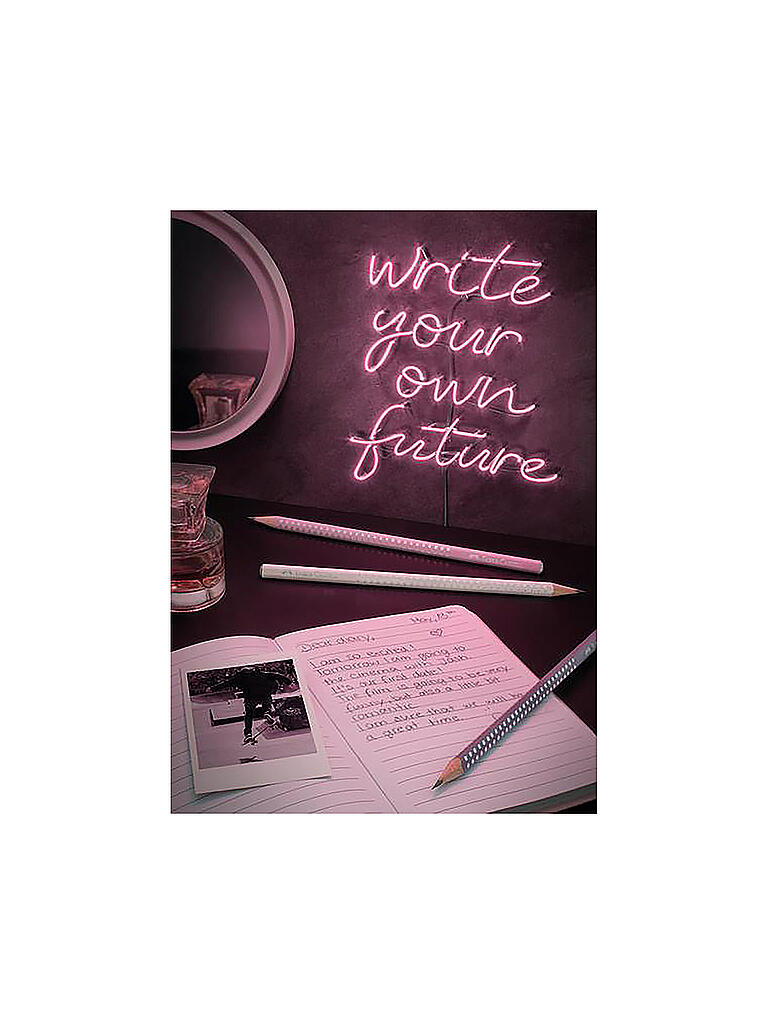 write
your
own
future
May, 13th
Dear diary,
I am so excited!
Tomorrow I am going to
the cinema with Josh.
It's our first date!
The film is going to be very
funny but also a little bit
romantic.
I am sure that we will be
a great time.